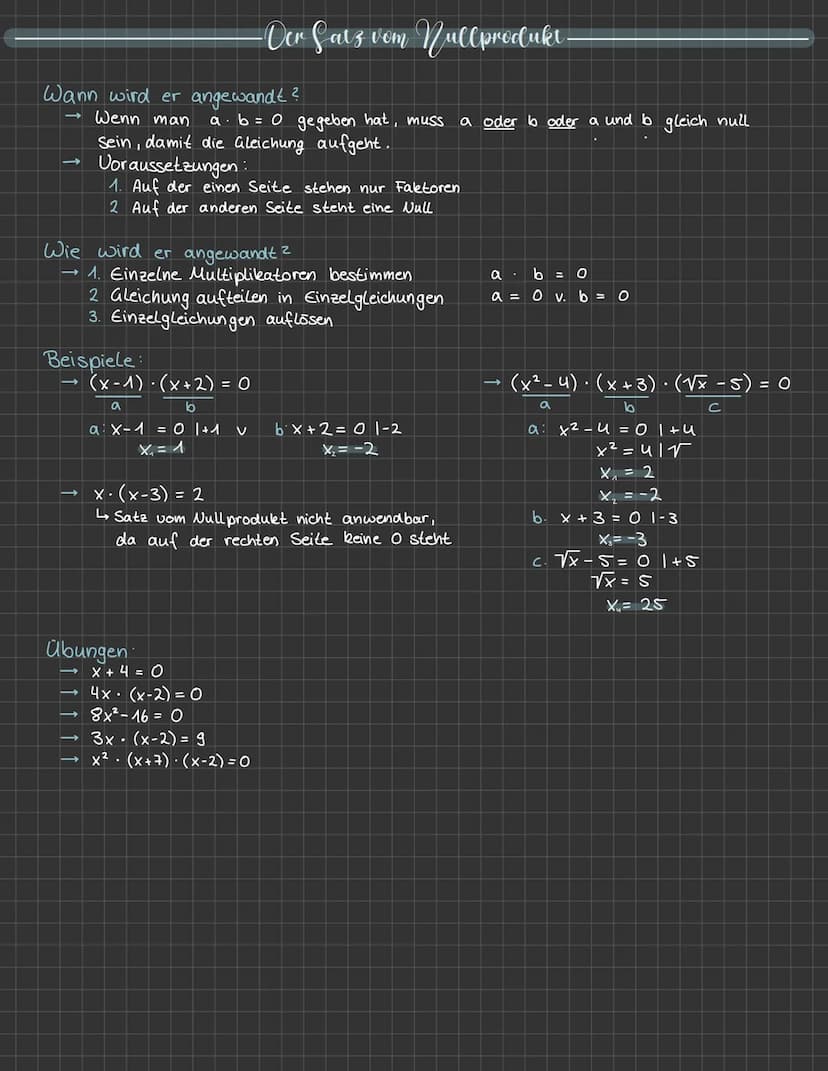 Der Satz vom Nullprodukt
Wann wird er angewandt?
→ Wenn man a · b = 0 gegeben hat, muss a oder b oder a und b gleich null
sein, damit die Gleichung aufgeht.
→ Voraussetzungen:
1. Auf der einen Seite stehen nur Faktoren
2 Auf der anderen Seite steht eine Null
Wie wird er angewandt?
→ 1. Einzelne Multiplikatoren bestimmen
2 Gleichung aufteilen in Einzelgleichungen
3. Einzelgleichungen auflösen
a · b = 0
a = 0 v. b = 0
Beispiele:
→ (x-1) · (x+2) = 0
a b
a: x-1 = 0 |+1 v b: x+2 = 0 |-2
x₁ = 1 x₂ = -2
→ x · (x-3) = 2
↳ Satz vom Nullprodukt nicht anwendbar,
da auf der rechten Seite keine 0 steht
→ (x²-4) · (x+3) · (√x - 5) = 0
a b c
a: x²-4 = 0 |+4
x² = 4 |√
x₁ = 2
x₂ = -2
b. x + 3 = 0 |-3
x₃ = -3
c. √x - 5 = 0 |+5
√x = 5
x₄ = 25
Übungen:
→ x + 4 = 0
→ 4x · (x-2) = 0
→ 8x² - 16 = 0
→ 3x · (x-2) = 9
→ x² · (x+7) · (x-2) = 0